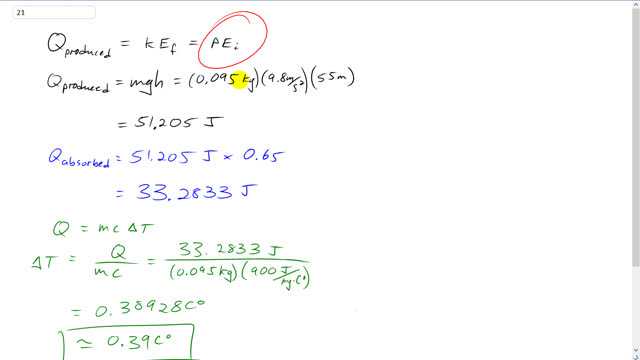 21
Q produced = KE f = PE i
Q produced = mgh = (0.095 kg)(9.8 m/s²)(55m)
= 51.205 J
Q absorbed = 51.205 J × 0.65
= 33.2833 J
Q = mcΔT
ΔT = Q/mc = 33.2833 J/(0.095kg)(900 J/kg·C°)
= 0.38928C°
≃ 0.39C°